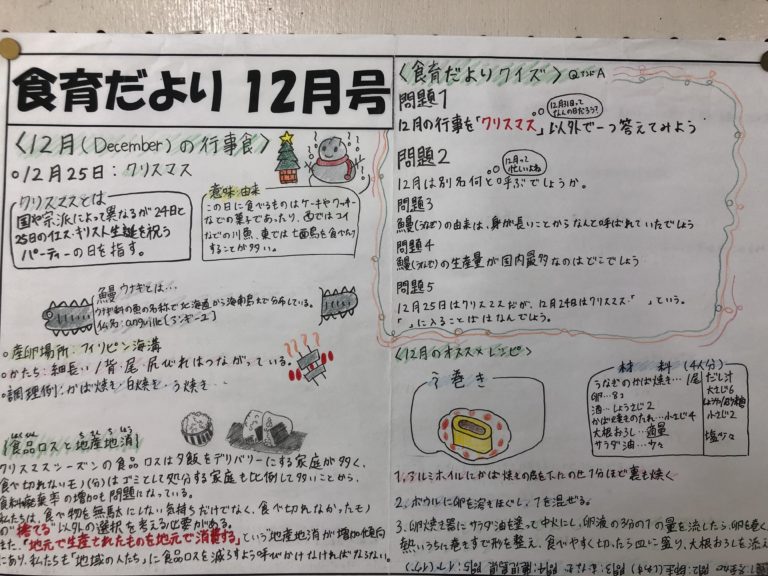 食育だより 12月号
〈12月(December)の行事食〉
○12月25日:クリスマス
クリスマスとは
国や宗派によって異なるが24日と
25日のイエス・キリスト生誕を祝う
パーティーの日を指す。
意味・由来
この日に食べるものはケーキやクッキー
などの菓子であったり、西ではコイ
などの川魚、東では七面鳥を食べたり
することが多い。
鰻 ウナギとは…
ウナギ科の魚の名称で北海道から海南島まで分布している。
仏名:anguille[アンギーユ]
○産卵場所:フィリピン海溝
○かたち:細長い/背・尾・尻びれはつながっている。
○調理例:かば焼き・白焼き・う焼き…
【食品ロスと地産地消】
しょくひん
ちさんちしょう
クリスマスシーズンの食品ロスは夕飯をデリバリーにする家庭が多く、
食べ切れないモノ(分)はゴミとして処分する家庭も比例して多いことから、
食料廃棄率の増加も問題になっている。
私たちは、食べ物を無駄にしない気持ちだけでなく、食べ切れなかったモノ
の"捨てる"以外の選択を考える必要がある。
また、"地元で生産されたものを地元で消費する"という"地産地消"が増加傾向
にあり、私たちも「地域の人たち」に食品ロスを減らすよう呼びかけなければならない。
〈食育だよりクイズ〉Q アンド A
問題1
12月31日って
なんの日だろう?
12月の行事を「クリスマス」以外で一つ答えてみよう
問題2
12月って
忙しいよね
12月は別名何と呼ぶでしょうか。
問題3
鰻(うなぎ)の由来は、身が長いことからなんと呼ばれていたでしょう
問題4
鰻(うなぎ)の生産量が国内最多なのはどこでしょう
問題5
12月25日はクリスマスだが、12月24日はクリスマス・「 」という。
「 」に入ることばはなんでしょう。
〈12月のオススメレシピ〉
う巻き
材 料 (4人分)
うなぎのかば焼き…1尾
卵…8コ
酒…しょうさじ2
かば焼きのたれ…小さじ4
大根おろし…適量
サラダ油…少々
だし汁
大さじ6
小さじ2
塩少々
1.アルミホイルにかば焼きの尾を下にのせ1分ほど裏も焼く
2.ボウルに卵を溶きほぐし、1を混ぜる。
3.卵焼き器にサラダ油を塗って中火にし、卵液の3分の1の量を流したら、卵を巻く。
熱いうちに巻きすで形を整え、食べやすく切ったら皿に盛り、大根おろしを添え